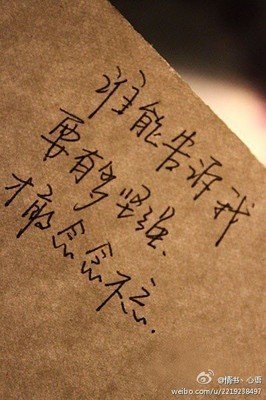 谁能告诉我
要有多坚强.
才敢念念不忘.
@情书、心语
weibo.com/u/2219238497